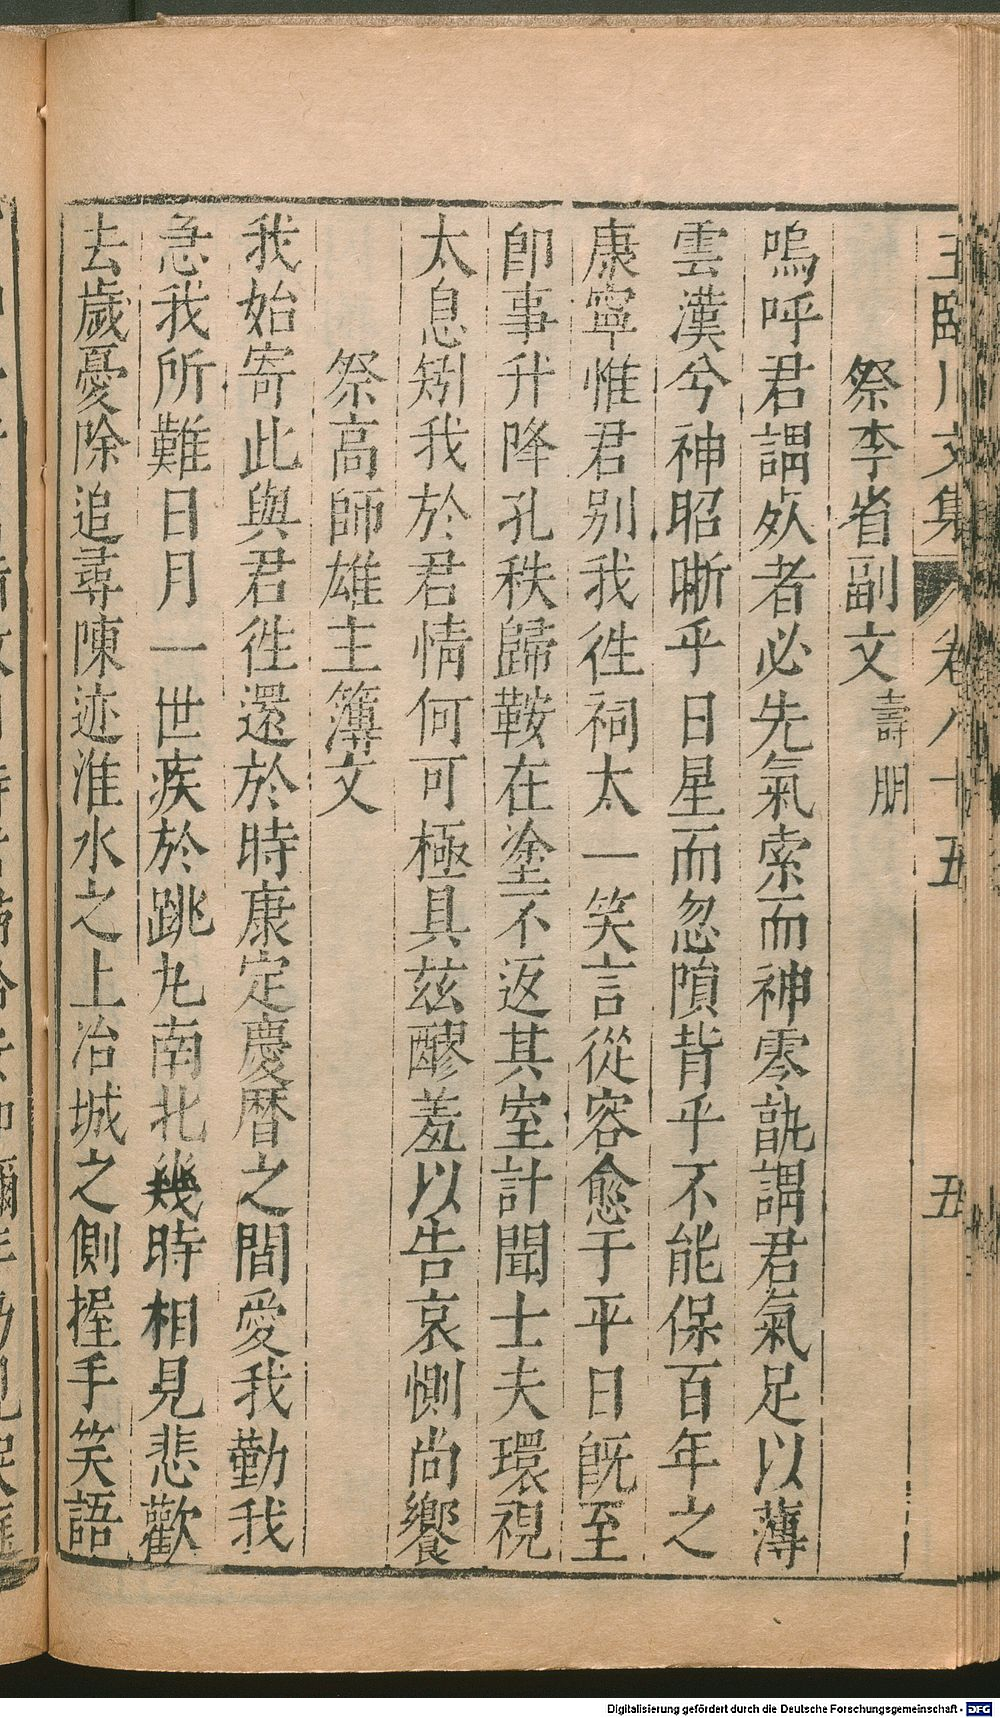 王臨川文集 卷八十五 五
祭李省副文壽朋
嗚呼君謂死者必先氣索而神零孰謂君氣足以薄
雲漢兮神昭晣乎日星而忽隕背乎不能保百年之
康寧惟君别我徃祠太一笑言從容愈于平日旣至
卽事升降孔秩歸鞍在塗不返其室訃聞士夫環視
太息矧我於君情何可極具兹醪羞以告哀惻尚饗
祭高師雄主簿文
我始寄此與君徃還於時康定慶曆之間愛我勤我
急我所難日月一世疾於跳丸南北幾時相見悲歡
去歲憂除追尋陳迹淮水之上冶城之側握手笑語
Digitalisierung gefördert durch die Deutsche Forschungsgemeinschaft - DFG